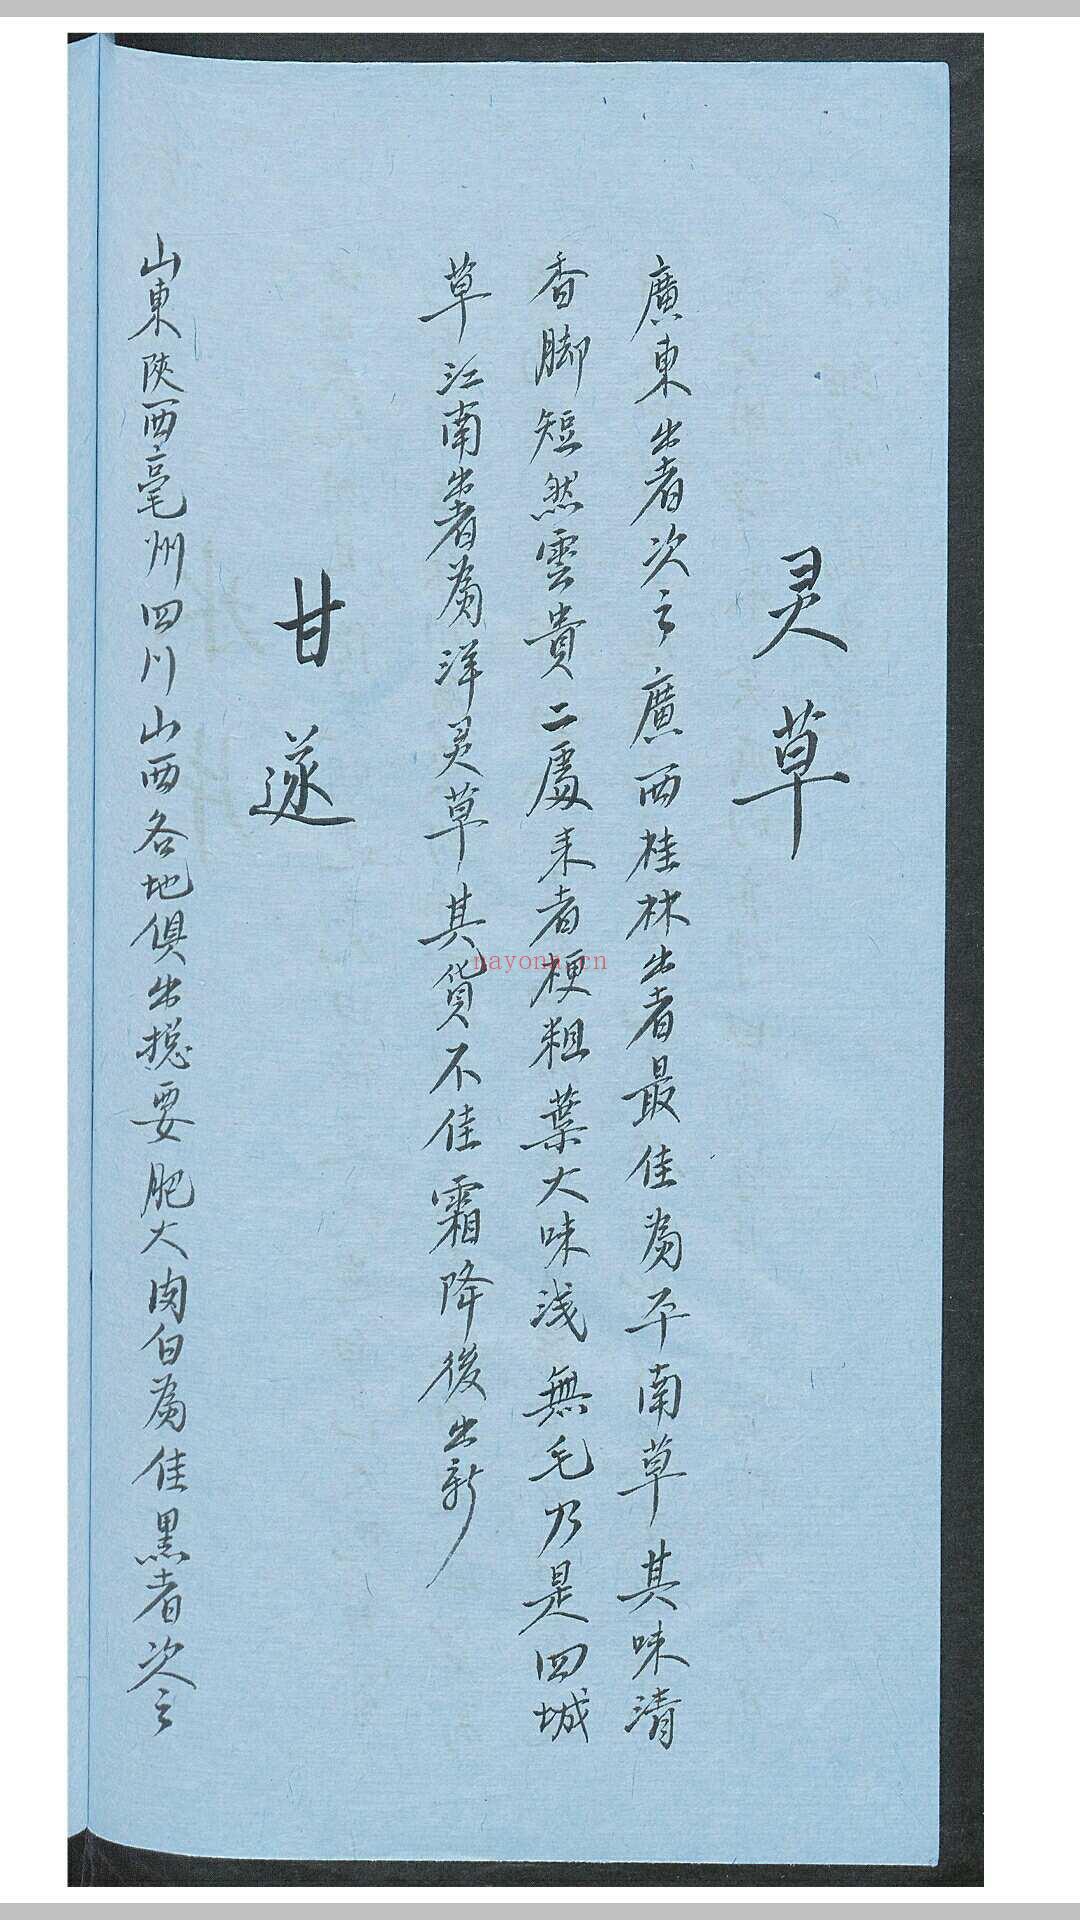 灵草
廣東出者次之廣西桂林出者最佳為平南草其味清
香脚短然雲貴二處来者梗粗葉大味浅無毛乃是四城
草江南出者為洋灵草其貨不佳霜降後出新
甘遂
山東陝西亳州四川山西各地俱出總要肥大肉白為佳黑者次之
nayona.cn